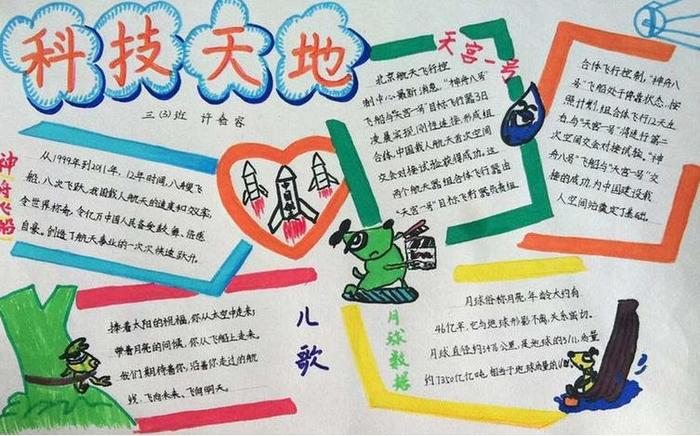 科技天地
三(3)班 许睿容
神舟飞船
从1999年到2011年，12年时间，八艘飞
船，八次飞跃，我国载人航天的速度和效率，
令世界称奇，令亿万中国人民备受鼓舞、倍感
自豪。创造了航天事业的一次次候选跃升。
中国航天
天宫一号
北京航天飞行控
制中心最新消息，“神舟八号”
飞船与“天宫一号”目标飞行器3日
凌晨实现刚性连接，形成组
合体，中国载人航天首次空间
交会对接试验获得成功。这
两个航天器组合体飞行器由
“天宫一号”目标飞行器负责组
合体飞行控制，“神舟八
号”飞船处于停靠状态。按
照计划，组合体飞行12天左
右，与“天宫一号”将进行第二
次空间交会对接试验。“神
舟八号”飞船与“天宫一号”交
接的成功，为中国建设载
人空间站奠定了基础。
儿歌
捧着太阳的祝福，你从太空中走来；
带着月亮的问候，你从飞船上走来。
我们期待着你，沿着你走过的航
线，飞向未来，飞向明天。
月球数据
月球俗称月亮，年龄大约有
46亿年，它与地球形影不离，关系密切。
月球直径约3476公里，是地球的3/11，质量
约7350亿亿吨，相当于地球质量的1/81。